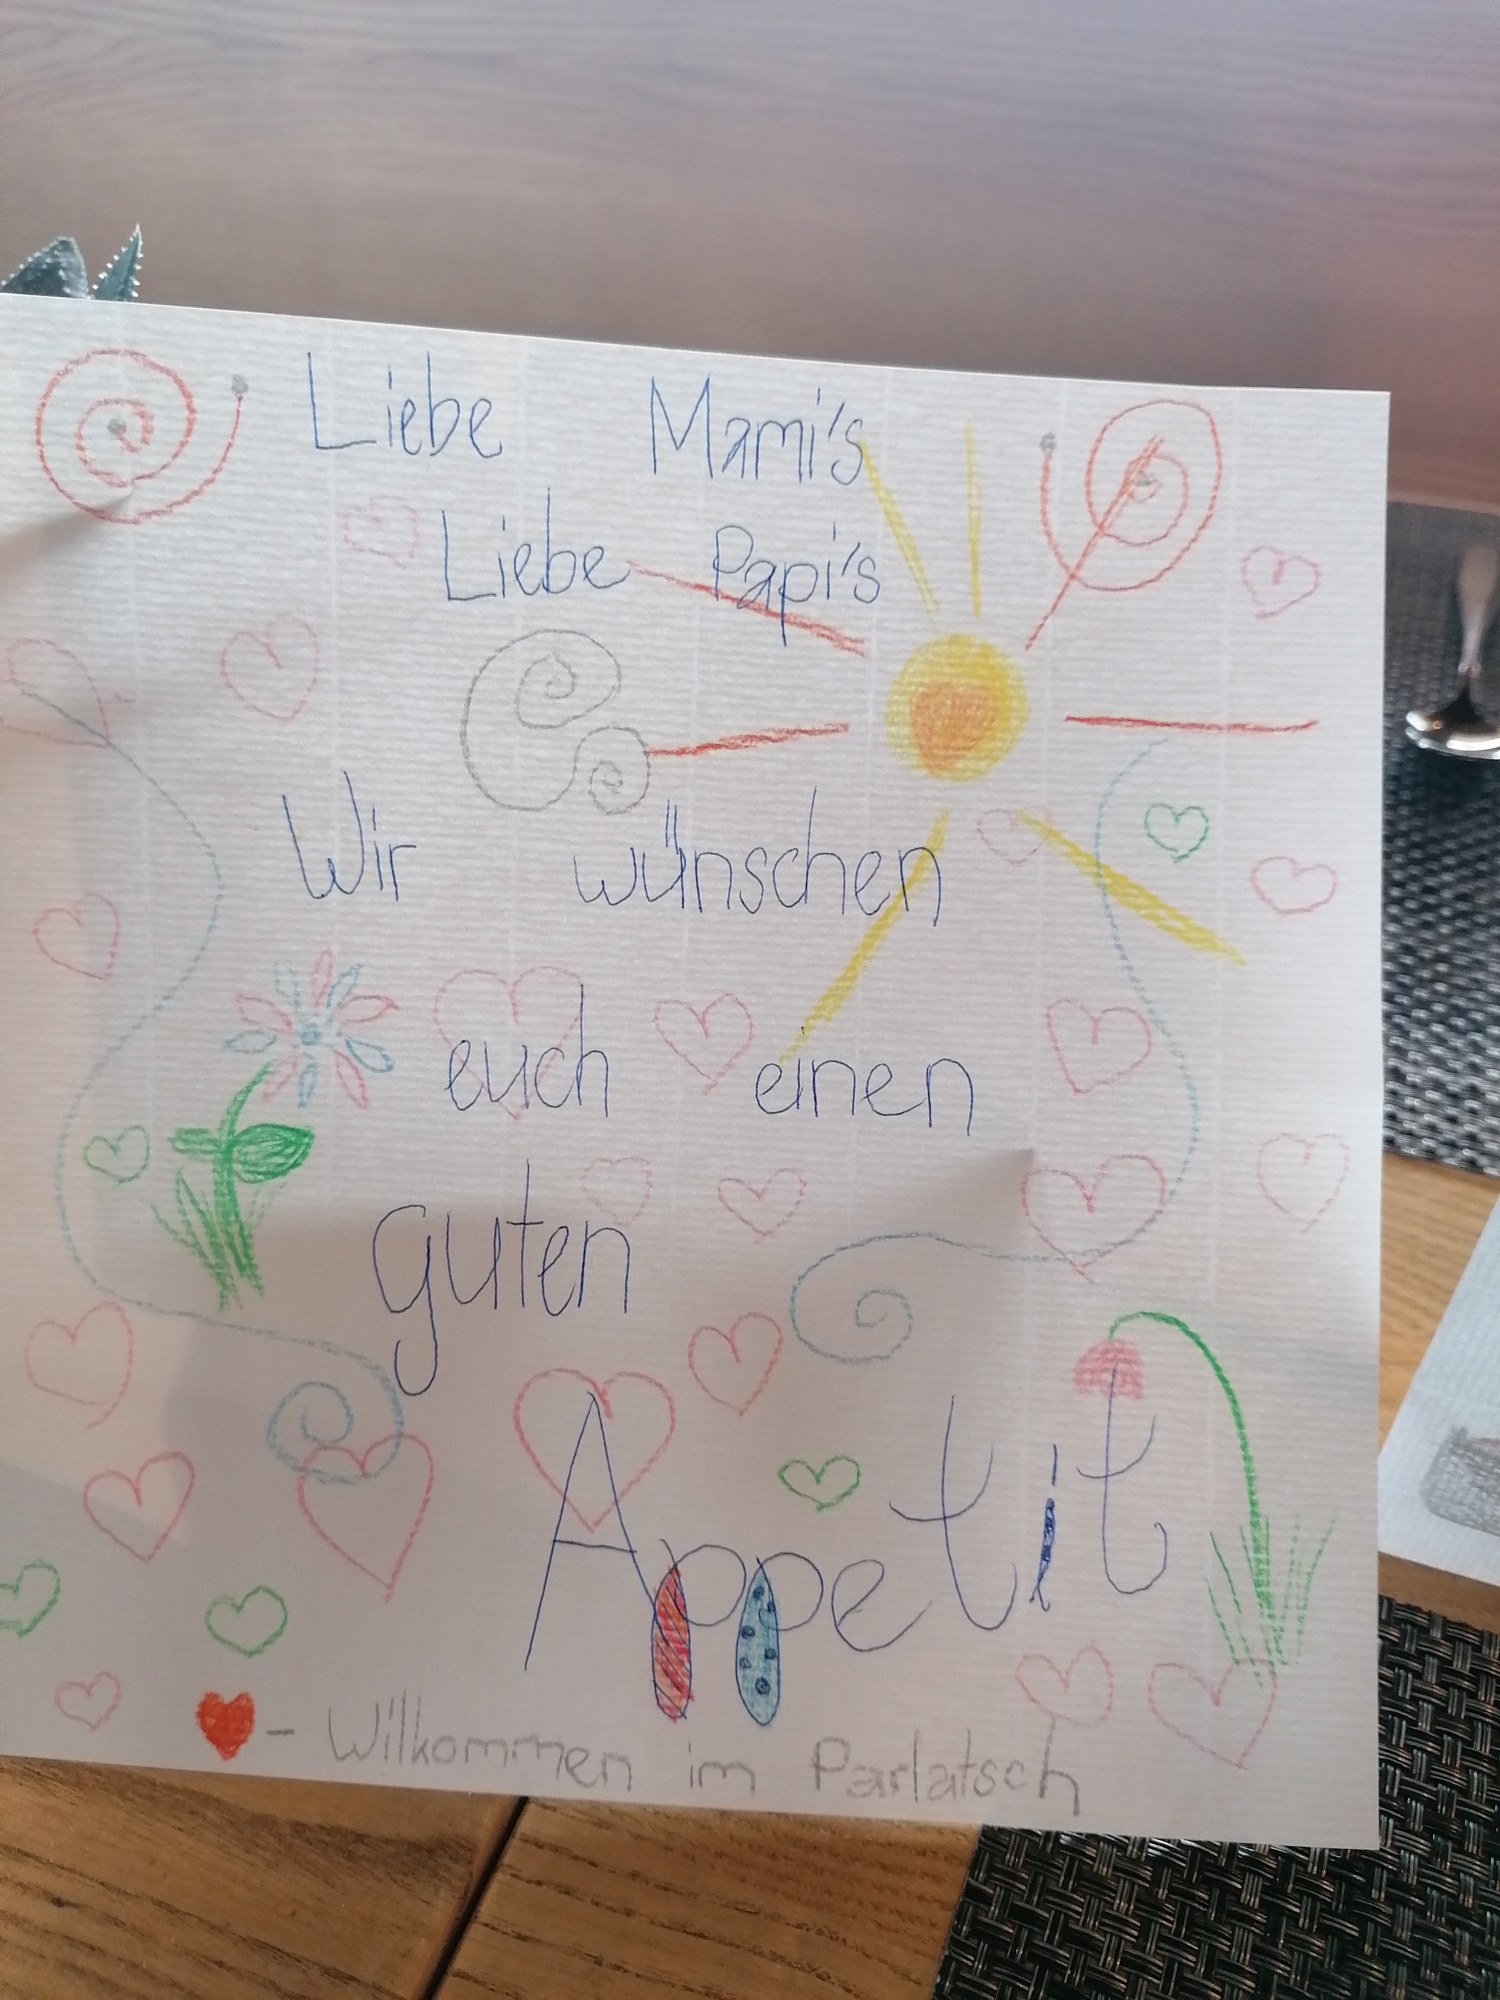 Liebe Mami's
Liebe Papi's
Wir wünschen
euch einen
guten
Appetit
- Willkommen im Parlatsch